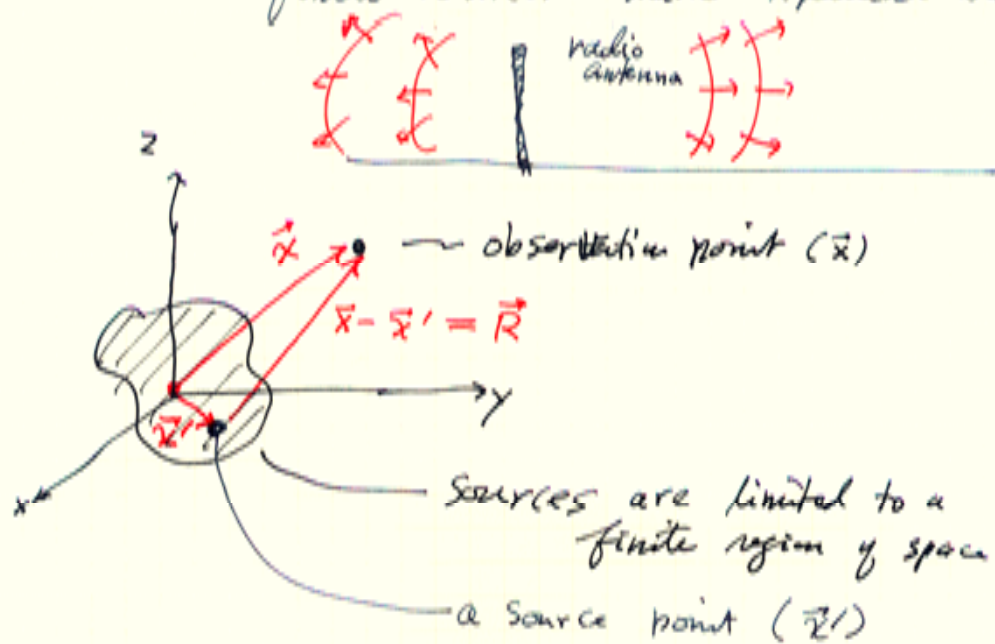 radio
antenna
z
x⃗
observation point (x⃗)
x⃗ - x⃗' = R⃗
y
x⃗'
x
sources are limited to a
finite region of space
a source point (x⃗')